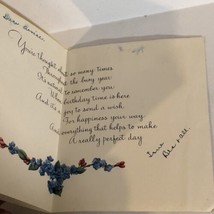 Dear
You're thought of so many times
Throughout the busy year
to remember you
birthday time is here
And joy to send a wish
For happiness your way
And everything that helps to make
A really perfect day
Love